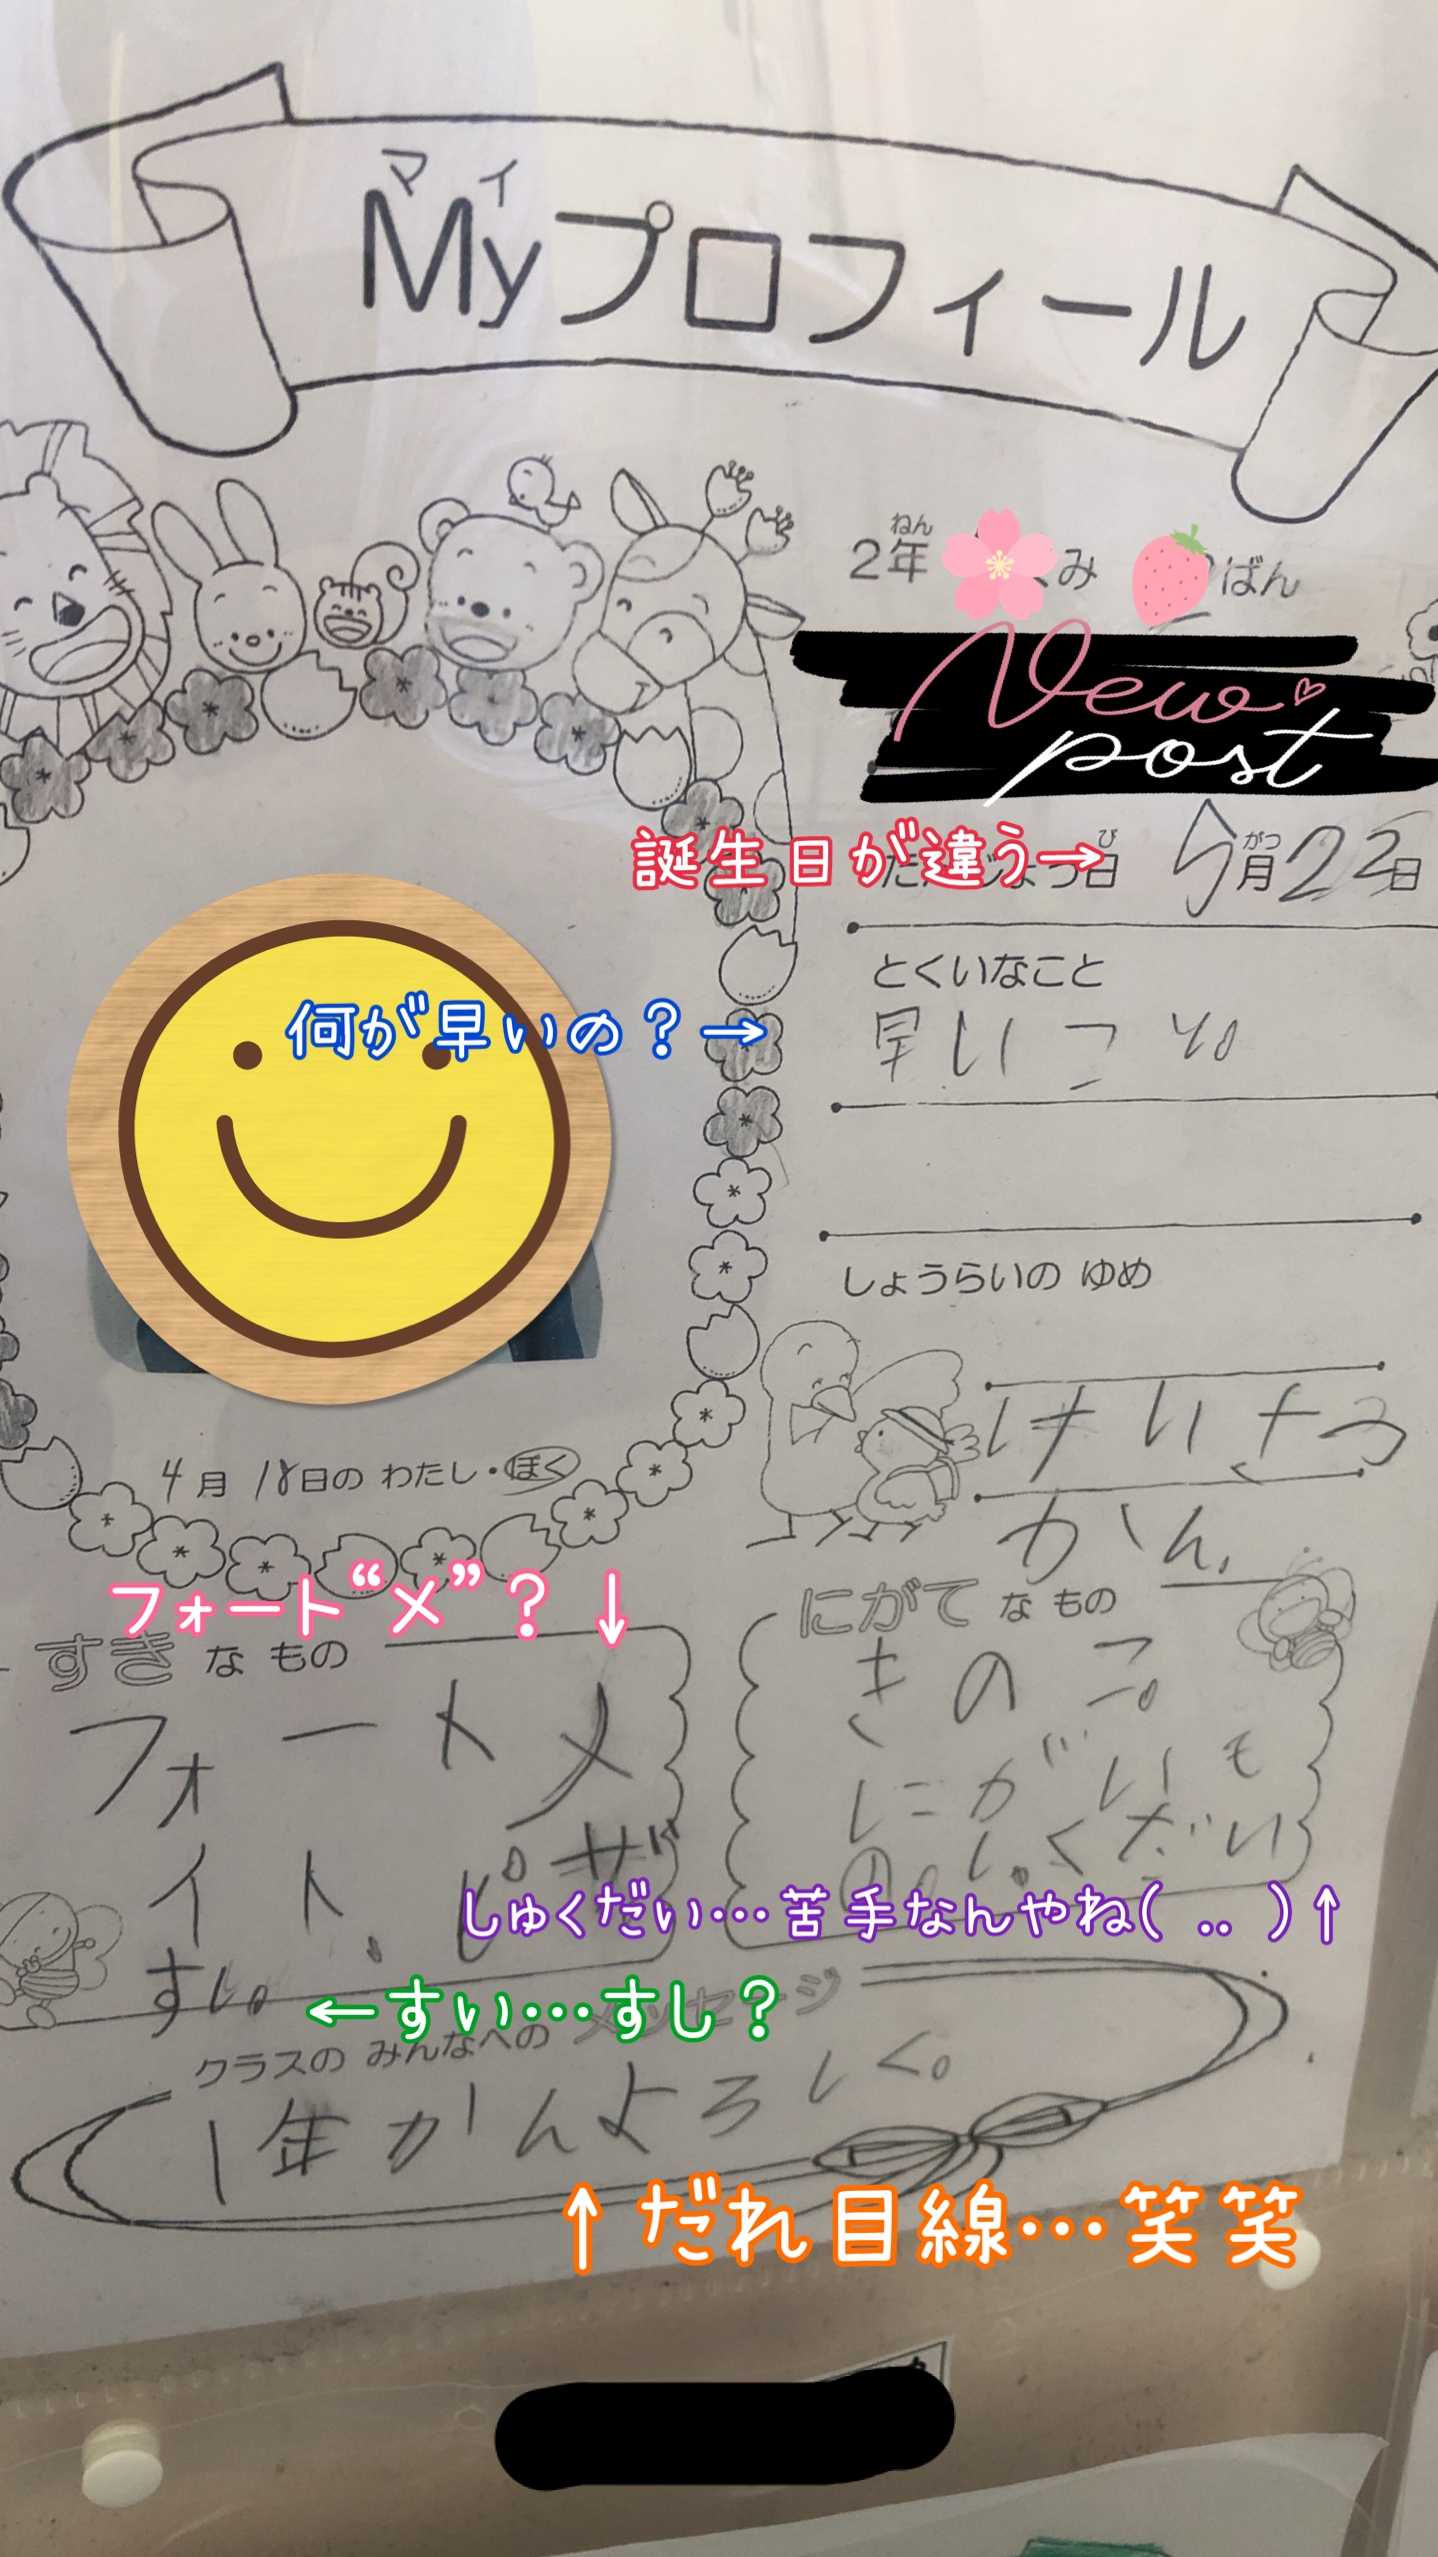 マイ
Myプロフィール
ねん
2年 み ばん
New
post
誕生日が違う→
び
日
がつ
5月22日
とくいなこと
何が早いの？→
早いこと。
しょうらいの ゆめ
けいさつ
かん
4月18日の わたし・ぼく
フォート“メ”？↓
すきな もの
フォートメ
イト、ピザ
すし。
にがてな もの
きのこ。
にがいも
の。しくだい
しゅくだい…苦手なんやね( .. )↑
←すい…すし？
クラスの みんなへの メッセージ
1年かんよろしく。
↑だれ目線…笑笑